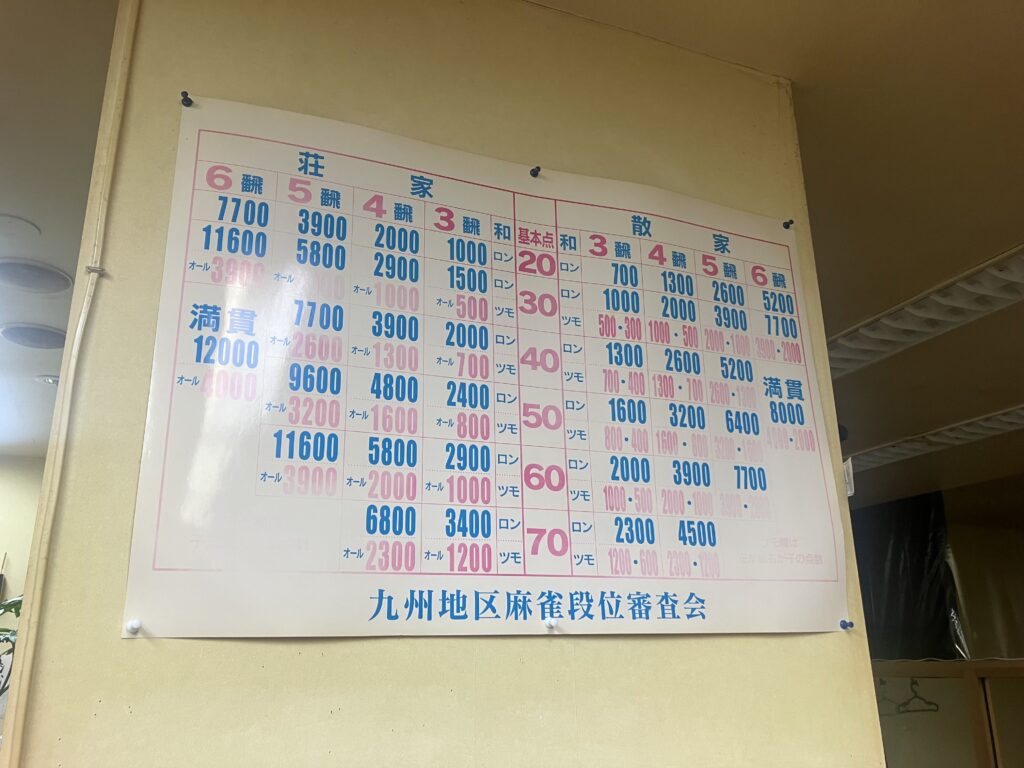 荘家 散家
6飜 5飜 4飜 3飜 和 基本点 和 3飜 4飜 5飜 6飜
7700 3900 2000 1000 ロン 20 ロン 700 1300 2600 5200
11600 5800 2900 1500 ロン 30 ロン 1000 2000 3900 7700
オール3900 オール オール1000 オール500 ツモ ツモ 500・300 1000・500 2000・1000 3900・2000
満貫 7700 3900 2000 ロン 40 ロン 1300 2600 5200 満貫
12000 オール2600 オール1300 オール700 ツモ ツモ 700・400 1300・700 2600・1300 8000
オール4000 9600 4800 2400 ロン 50 ロン 1600 3200 6400 4000・2000
オール3200 オール1600 オール800 ツモ ツモ 800・400 1600・800 3200・1600
11600 5800 2900 ロン 60 ロン 2000 3900 7700
オール3900 オール2000 オール1000 ツモ ツモ 1000・500 2000・1000
6800 3400 ロン 70 ロン 2300 4500
オール2300 オール1200 ツモ ツモ 1200・600 2300・1200
九州地区麻雀段位審査会